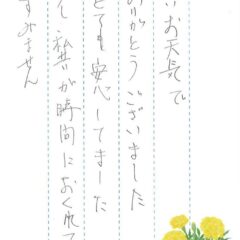 いお天気で
ありがとうございました
とても安心してました
く私共が時間におくれて
すみません